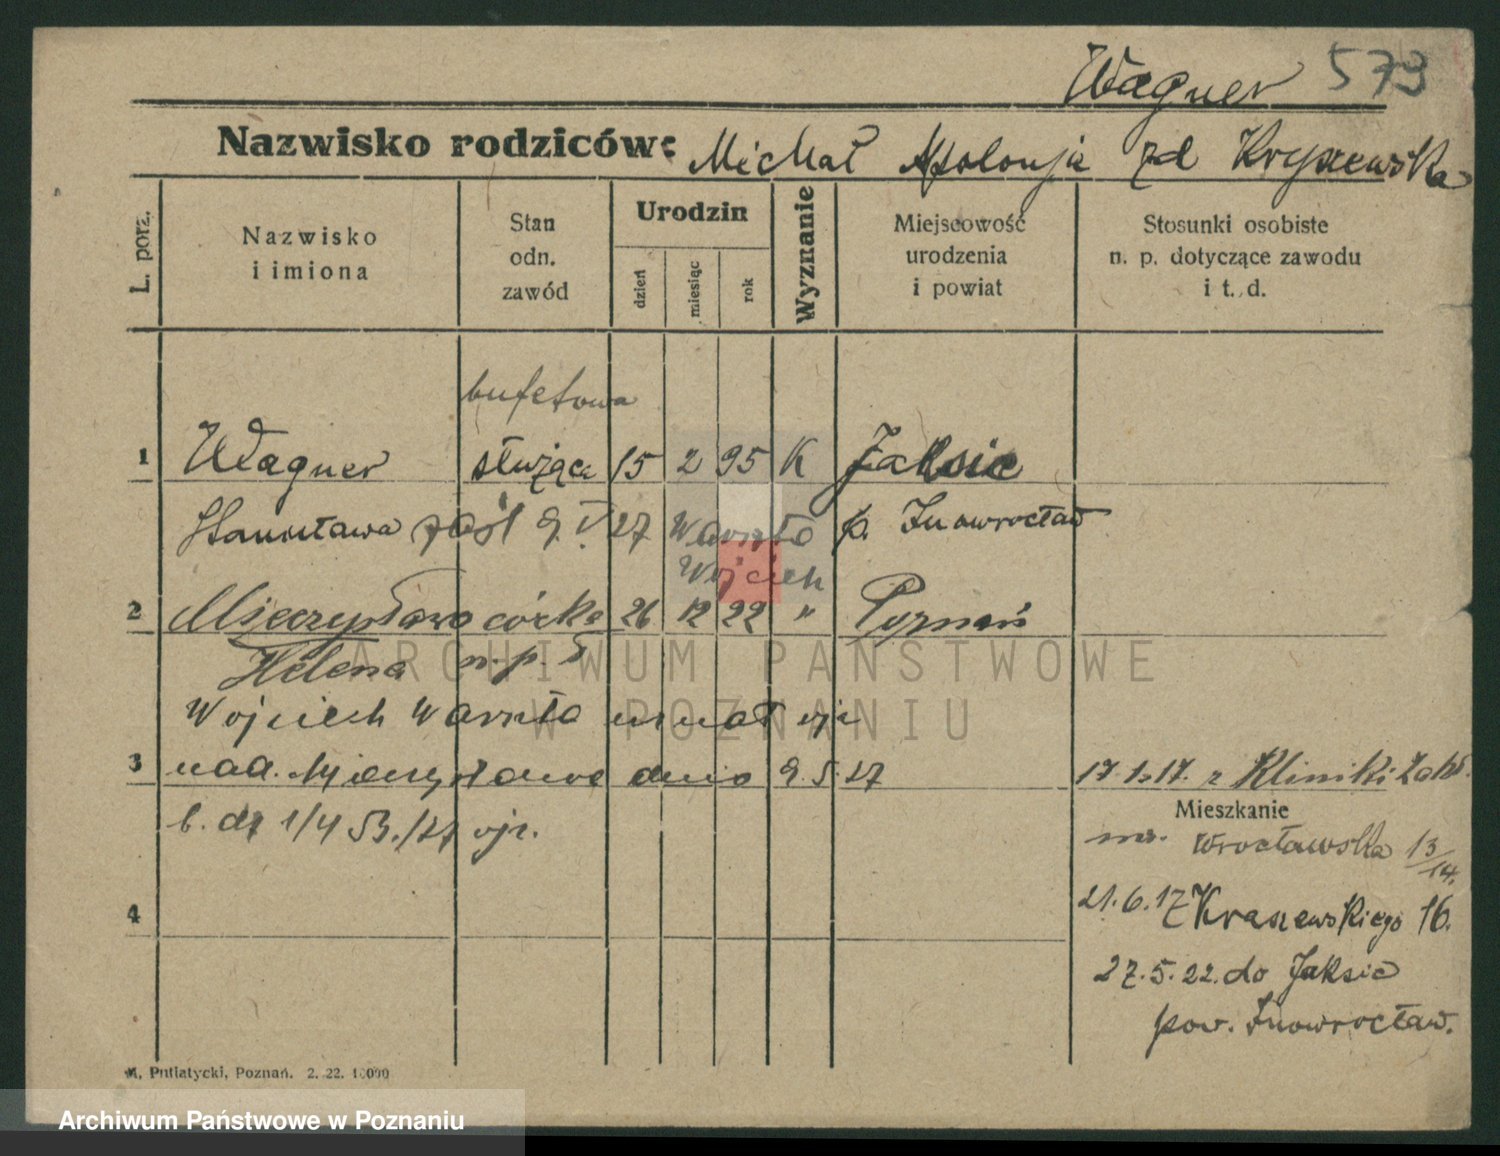 Wagner 573
Nazwisko rodziców: Michał Apolonja zd Kryszewska
L. porz.
Nazwisko
i imiona
Stan
odn.
zawód
Urodzin
dzień
miesiąc
rok
Wyznanie
Miejscowość
urodzenia
i powiat
Stosunki osobiste
n. p. dotyczące zawodu
i t. d.
bufetowa
1 Wagner służąca 15 2 95 K Jaksic
Stanisława zaśl 9. V 27 Warzła p. Inowrocław
Wojciech
2 Mieczysława córka 26 12 22 " Poznań
Helena n. p. ł
ARCHIWUM PAŃSTWOWE
W POZNANIU
Wojciech Warzła uznał ojc
3 nad. Mieczysławę dnia 9.5.27
17.1.17. z Kliniki
l. dz 1/4 53./27 ojc.
Mieszkanie
Wrocławska 13/14.
21.6.17 Kraszewskiego 16.
4
27.5.22. do Jaksic
pow. Inowrocław.
M. Putiatycki, Poznań. 2. 22. 10000
Archiwum Państwowe w Poznaniu